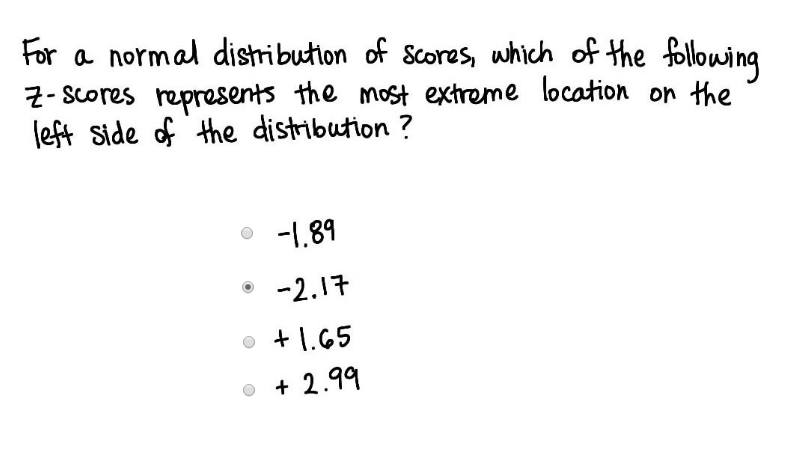 For a normal distribution of scores, which of the following
z-scores represents the most extreme location on the
left side of the distribution?
-1.89
-2.17
+1.65
+ 2.99